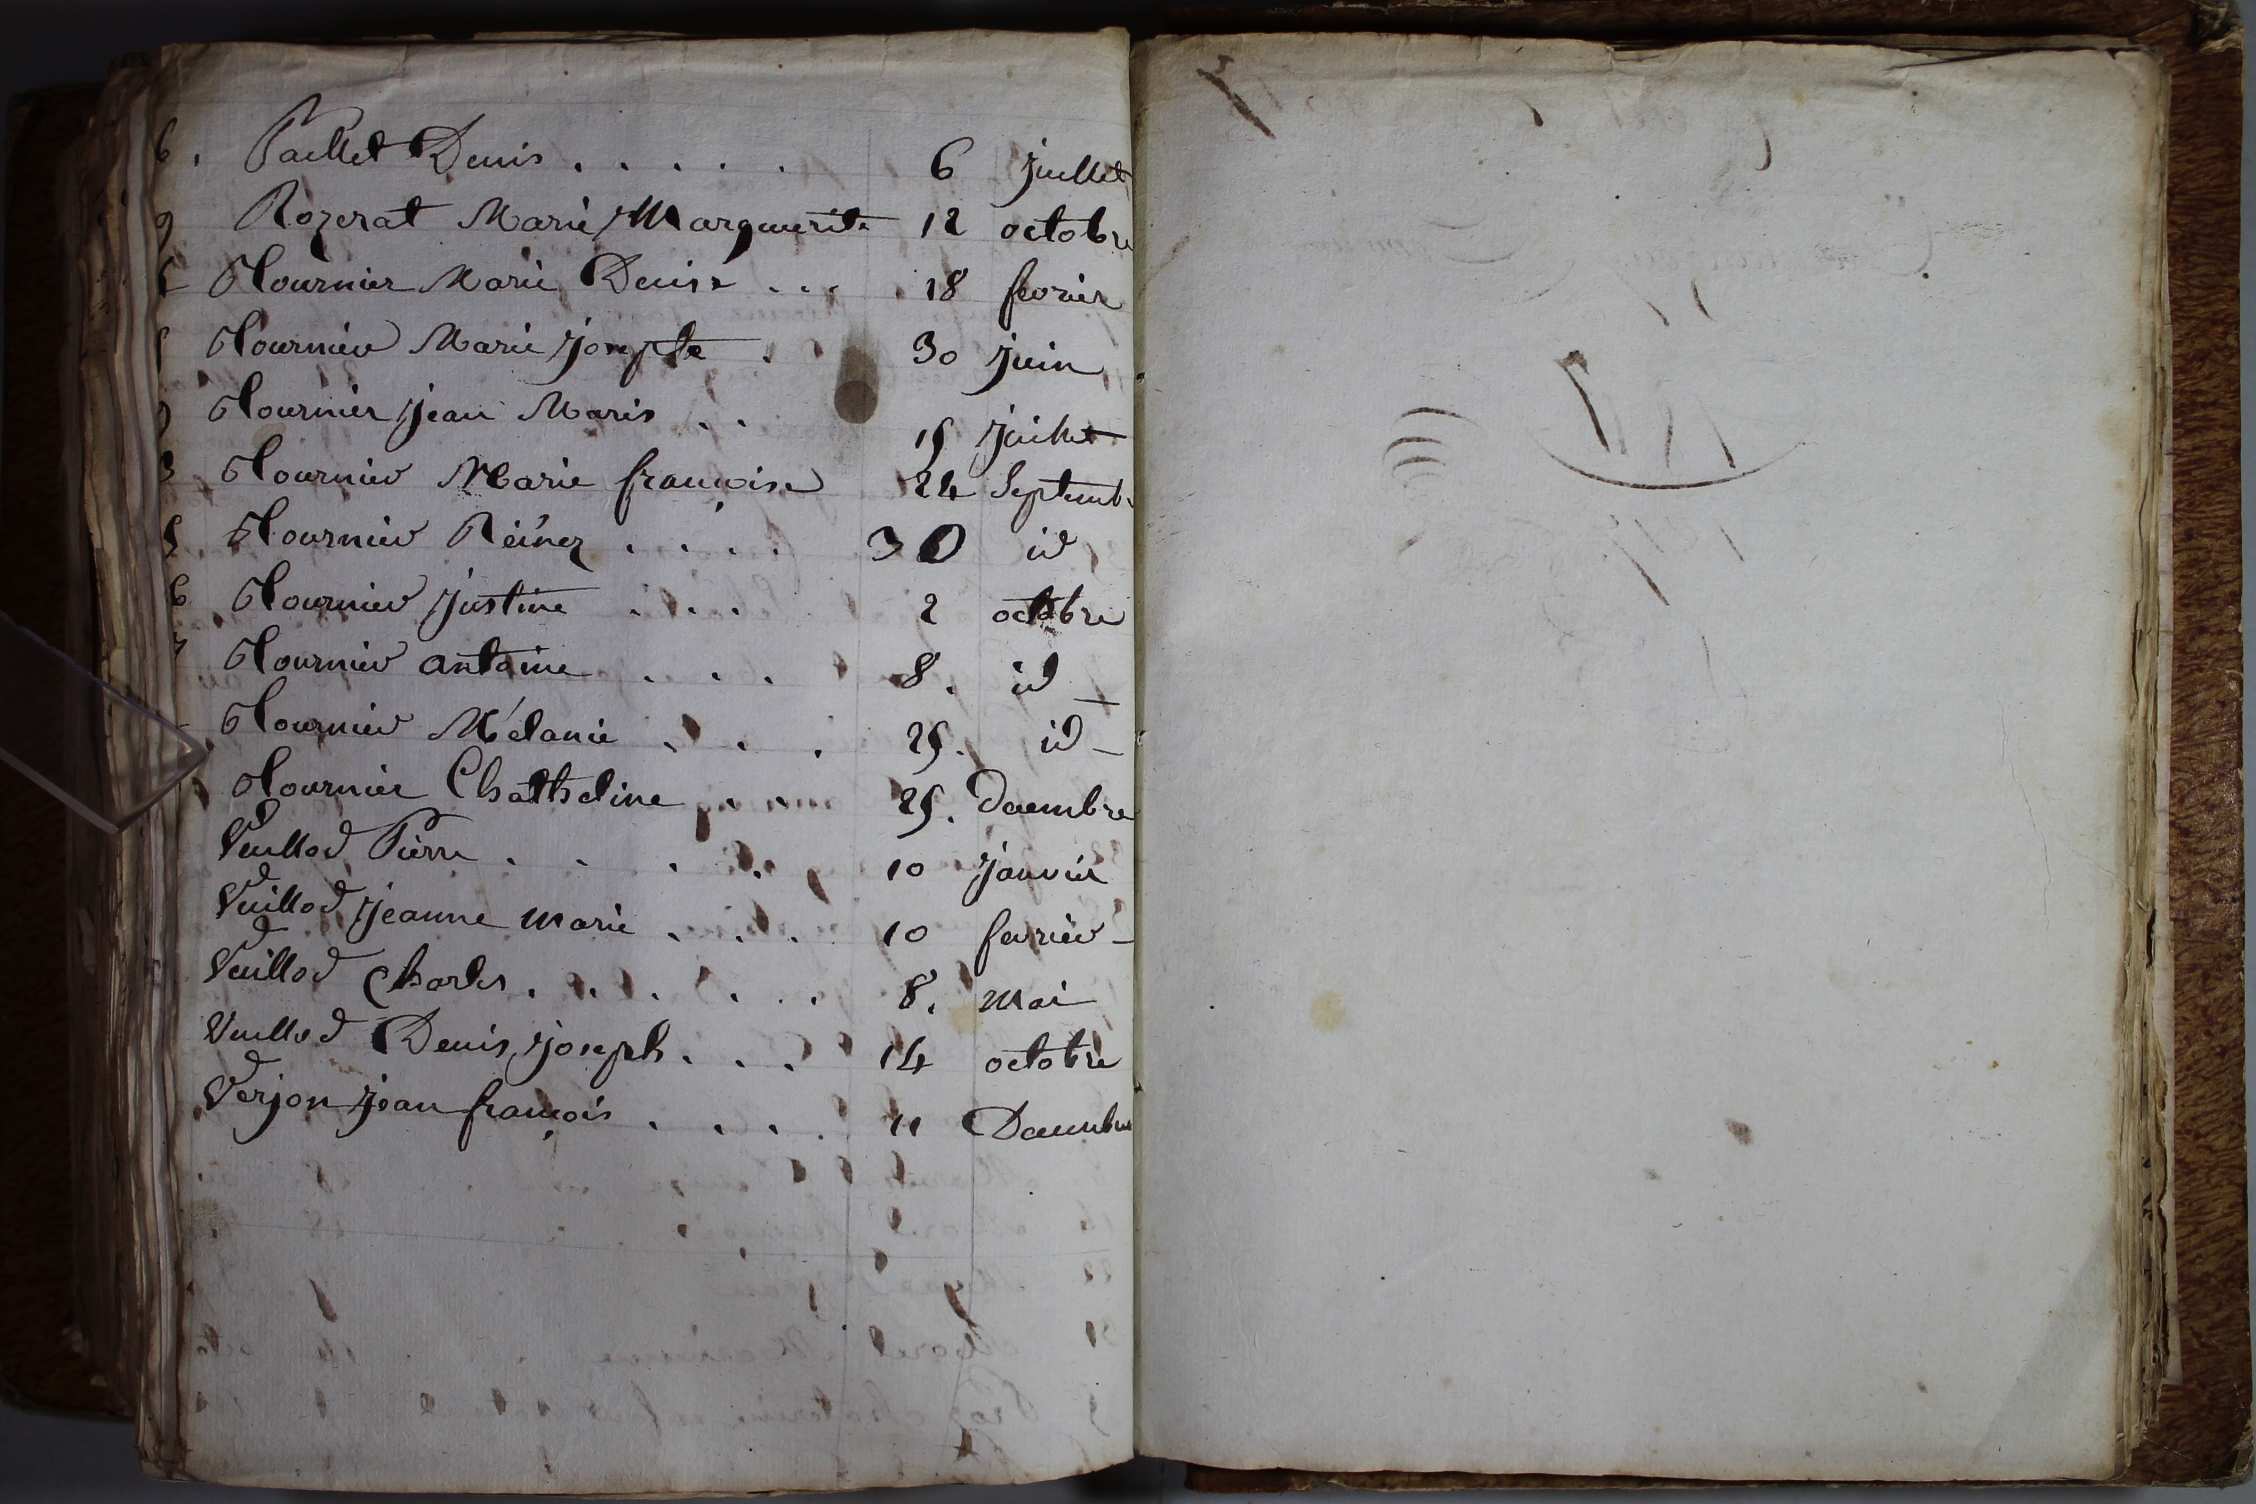 6. Paillet Denis . . . . . 6 juillet
9 Rozerat Marie Marguerite 12 octobre
Tournier Marie Denise . . . 18 fevrier
Tournier Marie Josephte . 30 juin
Tournier Jean Marie . . 15 juillet
3 Tournier Marie françoise 24 Septemb
5 Tournier Reine . . . . 30 id
6 Tournier Justine . . . 2 octobre
7 Tournier antoine . . . 8. id
Tournier Mélanie . . . 25. id
Tournier Chatheline . . 25. Decembre
Vuillod Pierre . . . . 10 Janvier
Vuillod Jeanne marie . . . 10 fevrier
Vuillod Charles . . . . . 8. mai
Vuillod Denis Joseph . . . 14 octobre
Verjon Jean françois . . . . 11 Decembre